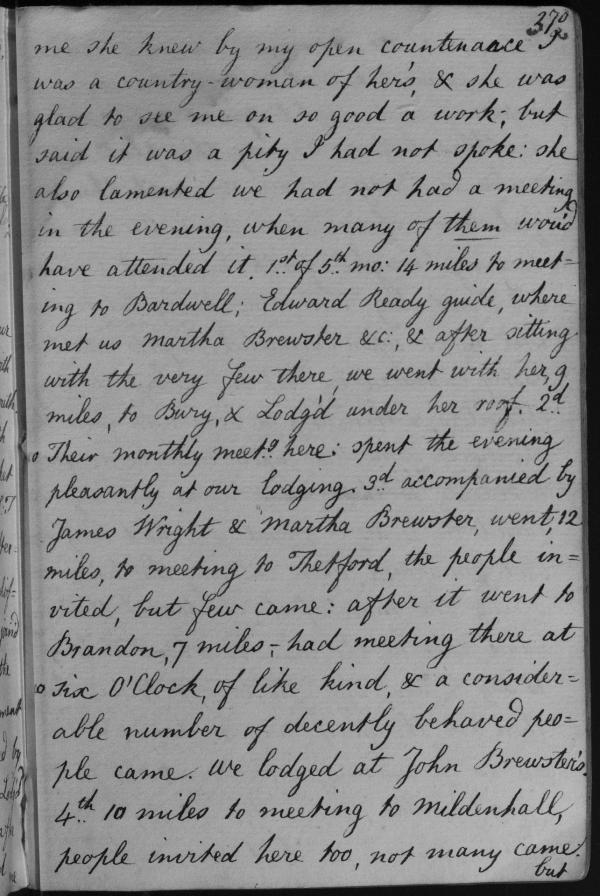 370
me she knew by my open countenance I
was a country-woman of her's, & she was
glad to see me on so good a work; but
said it was a pity I had not spoke: she
also lamented we had not had a meeting
in the evening, when many of them wou'd
have attended it. 1st of 5th mo: 14 miles to meet=
ing to Bardwell; Edward Ready guide, where
met us Martha Brewster &c:, & after sitting
with the very few there, we went with her, 9
miles, to Bury, & Lodg'd under her roof. 2d
Their monthly meetg here: spent the evening
pleasantly at our lodging. 3d accompanied by
James Wright & Martha Brewster, went, 12
miles, to meeting to Thetford, the people in=
vited, but few came: after it went to
Brandon, 7 miles; had meeting there at
six O'Clock, of like kind, & a consider=
able number of decently behaved peo=
ple came. We lodged at John Brewster's.
4th 10 miles to meeting to Mildenhall,
people invited here too, not many came.
but